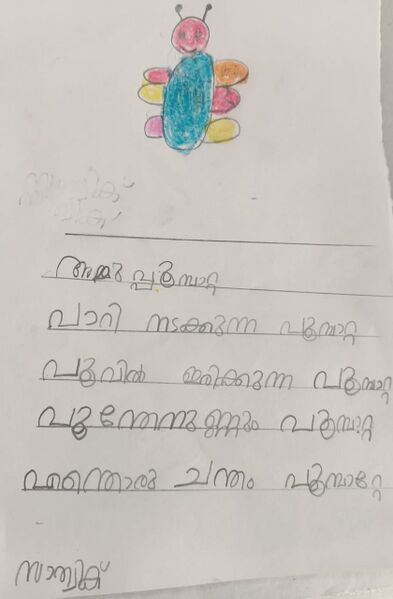 അമ്മു പൂമ്പാറ്റ
പാറി നടക്കുന്ന പൂമ്പാറ്റ
പൂവിൽ ഇരിക്കുന്ന പൂമ്പാറ്റ
പൂന്തേനുണ്ണും പൂമ്പാറ്റ
എന്തൊരു ചന്തം പൂമ്പാറ്റേ
സാത്വിക്